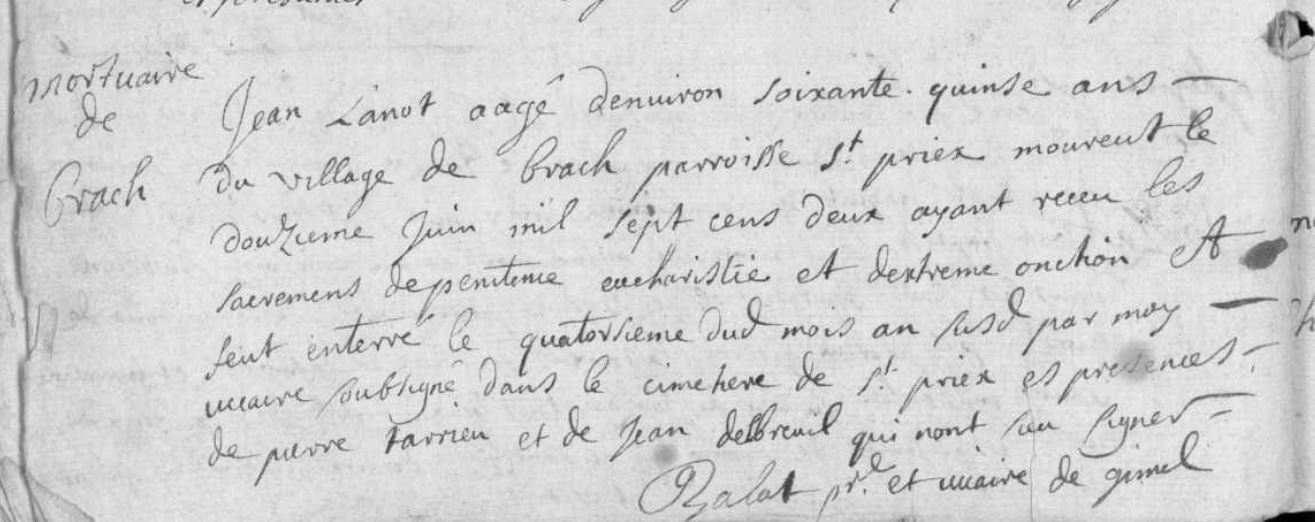 mortuaire
de
brach
Jean Lanot aagé denuiron soixante. quinse ans —
du village de brach parroisse st priex mourent le
douzieme Juin mil sept cens deux ayant receu les
sacremens de penitense eucharistie et dextreme onction et
feut enterré le quatorsieme dud mois an susd par moy —
uicaire soubsigné dans le cimetiere de st priex es presences -
de pierre tarrieu et de Jean delbreuil qui nont sceu signer =
Ralat pr. et uicaire de gimel